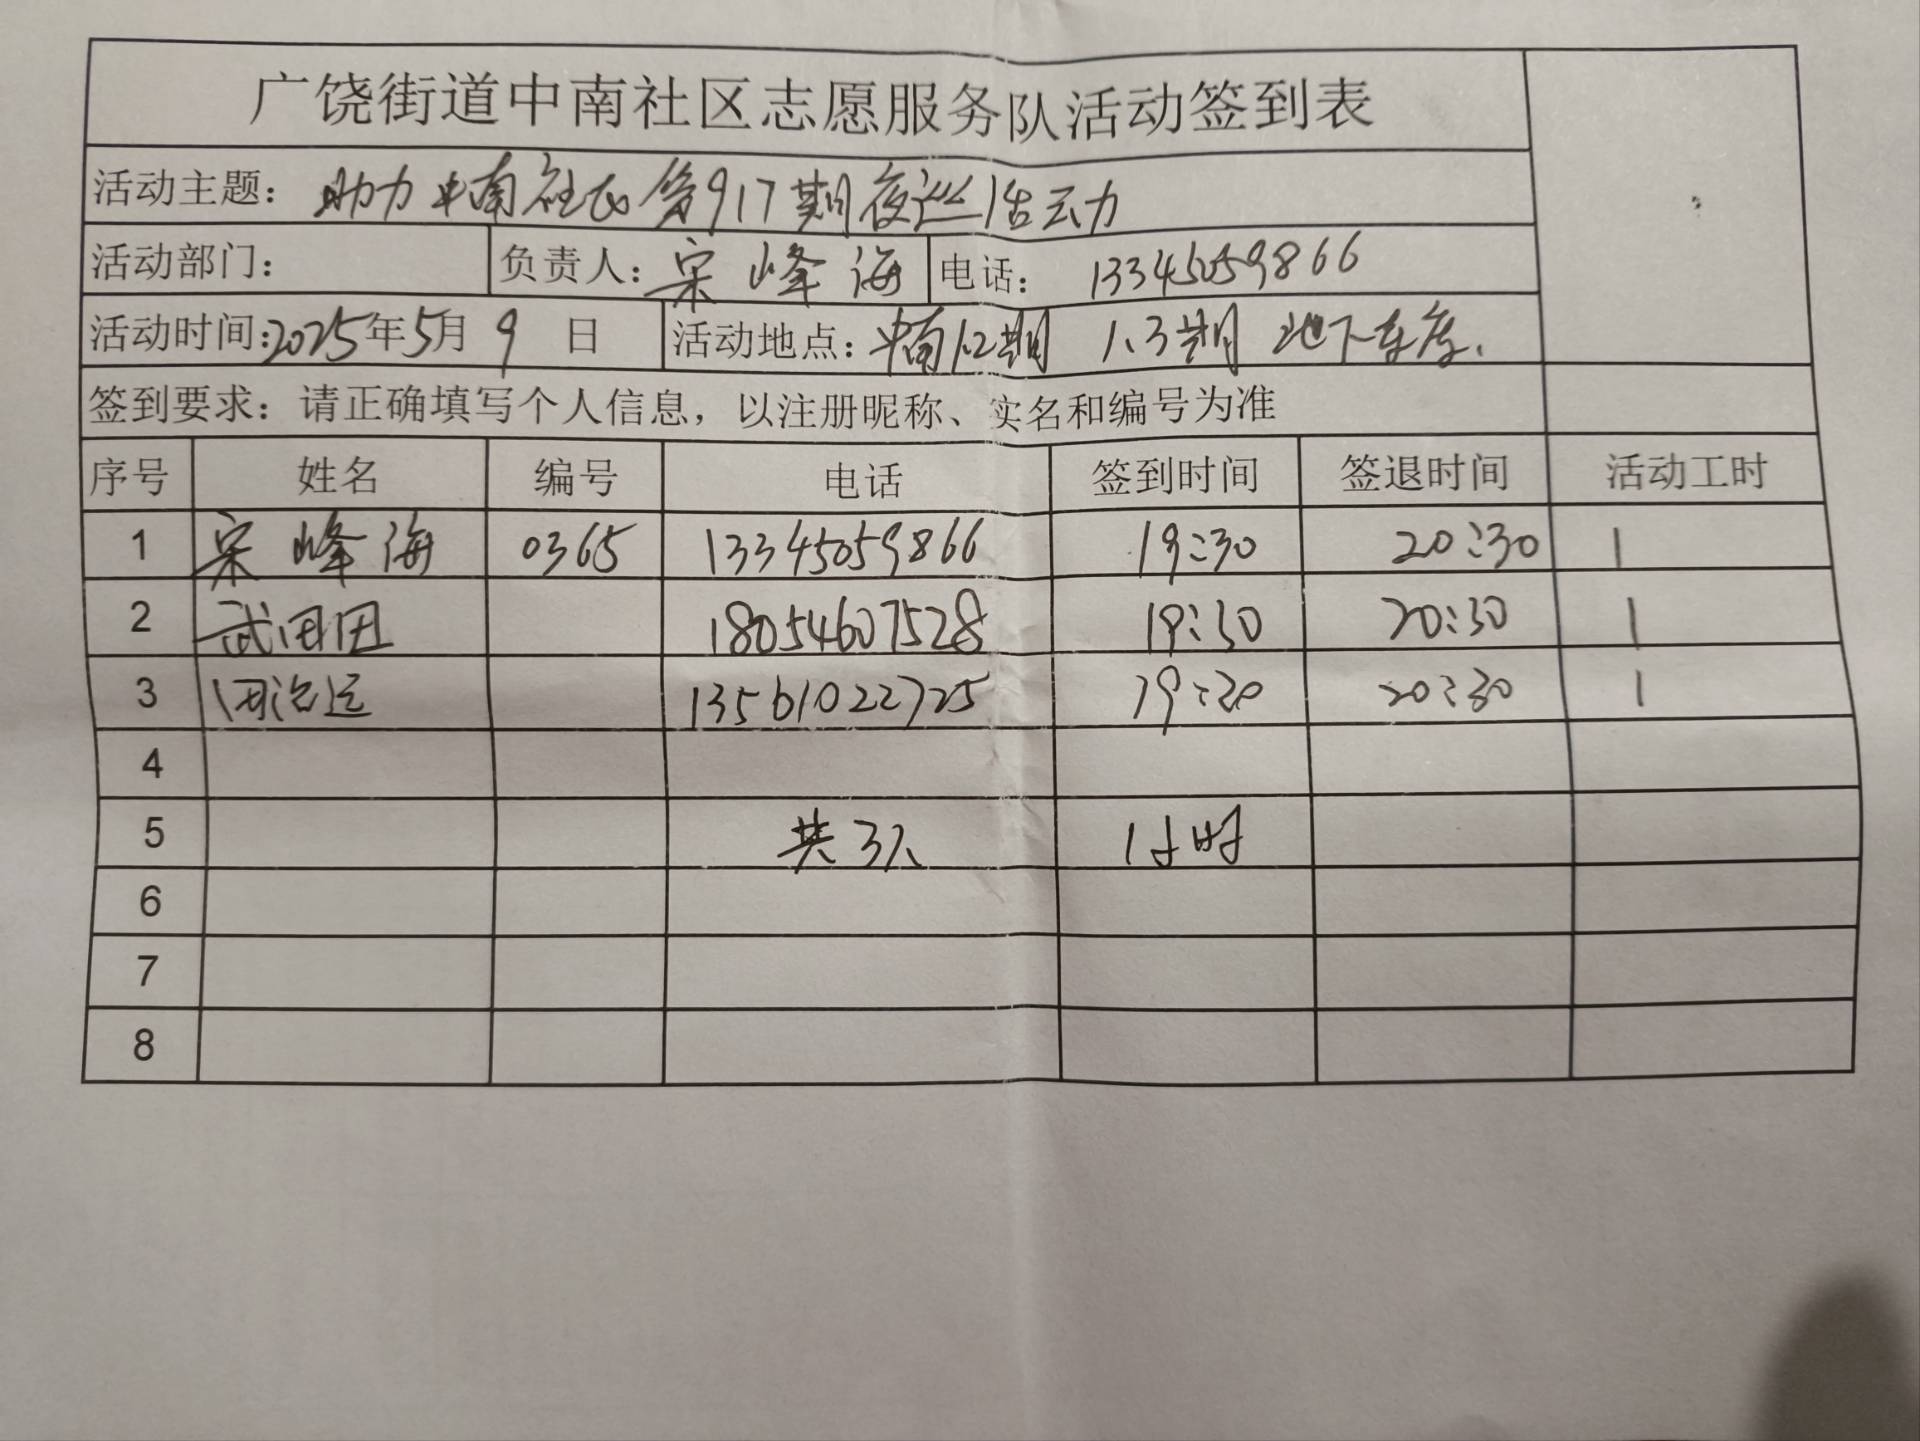 广饶街道中南社区志愿服务队活动签到表
活动主题：助力中南社区第917期夜巡活动
活动部门： 负责人：宋峰海 电话：13345059866
活动时间：2025年5月9日 活动地点：中南1.2期 1.3期 地下车库.
签到要求：请正确填写个人信息，以注册昵称、实名和编号为准
序号 姓名 编号 电话 签到时间 签退时间 活动工时
1 宋峰海 0365 13345059866 19:30 20:30 1
2 武团团 18054607528 19:30 20:30 1
3 13561022725 19:30 20:30 1
4
5 共3人 1小时
6
7
8